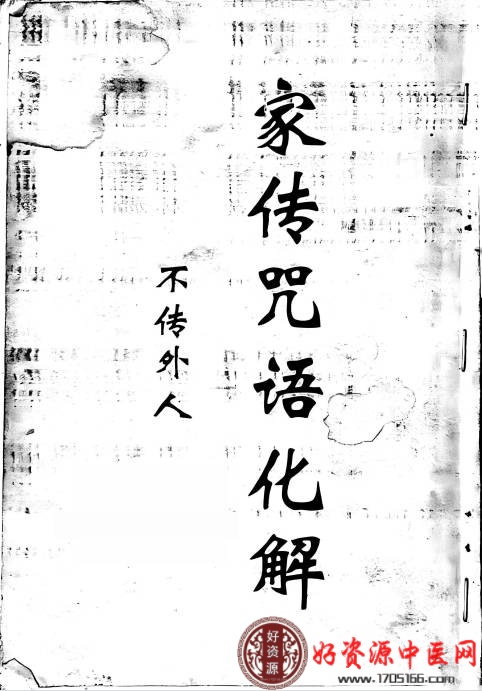 家传咒语化解
不传外人
好资源
好资源中医网
www.1705166.com